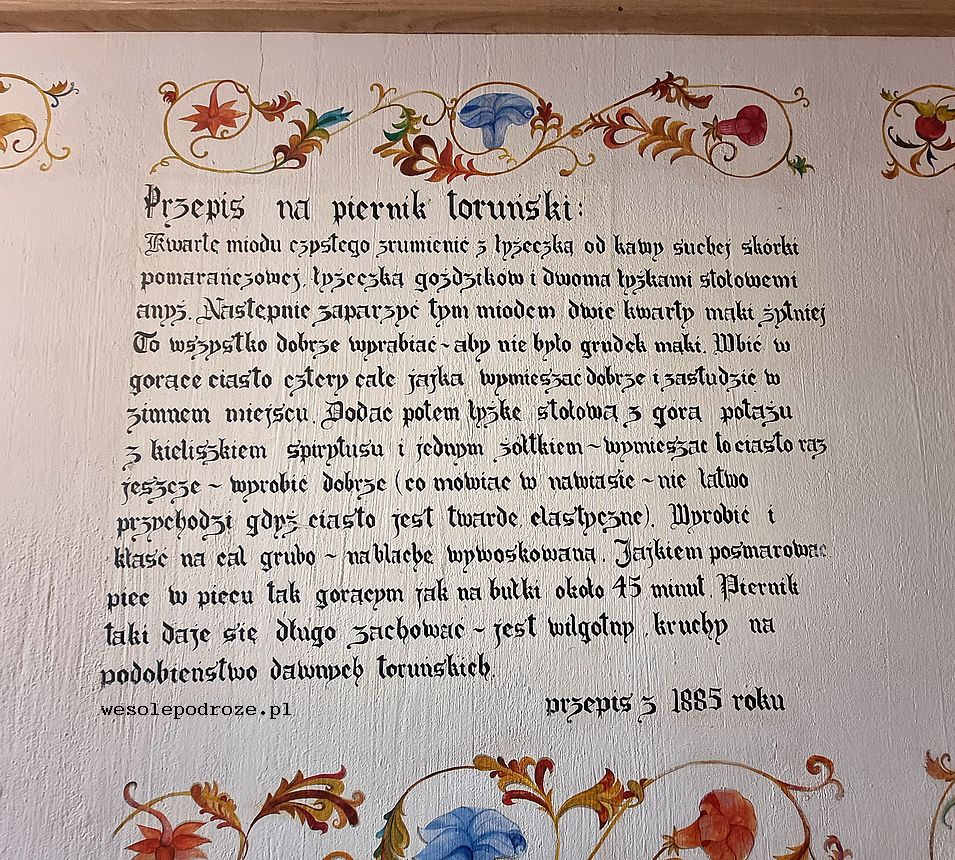 Przepis na piernik toruński:
Kwartę miodu czystego zrumienić z łyżeczką od kawy suchej skórki
pomarańczowej, łyżeczką goździków i dwoma łyżkami stołowemi
anyż. Następnie zaparzyć tym miodem dwie kwarty mąki żytniej
To wszystko dobrze wyrabiać ~ aby nie było grudek mąki. Wbić w
gorące ciasto cztery całe jajka wymieszać dobrze i zastudzić w
zimnem miejscu. Dodać potem łyżkę stołową z górą potażu
z kieliszkiem spirytusu i jednym żółtkiem ~ wymieszać to ciasto raz
jeszcze ~ wyrobić dobrze (co mówiąc w nawiasie ~ nie łatwo
przychodzi gdyż ciasto jest twarde, elastyczne). Wyrobić i
kłaść na cal grubo ~ na blachę wywoskowaną. Jajkiem posmarować
piec w piecu tak gorącym jak na bułki około 45 minut. Piernik
taki daje się długo zachować ~ jest wilgotny, kruchy na
podobieństwo dawnych toruńskich.
przepis z 1885 roku
wesolepodroze.pl